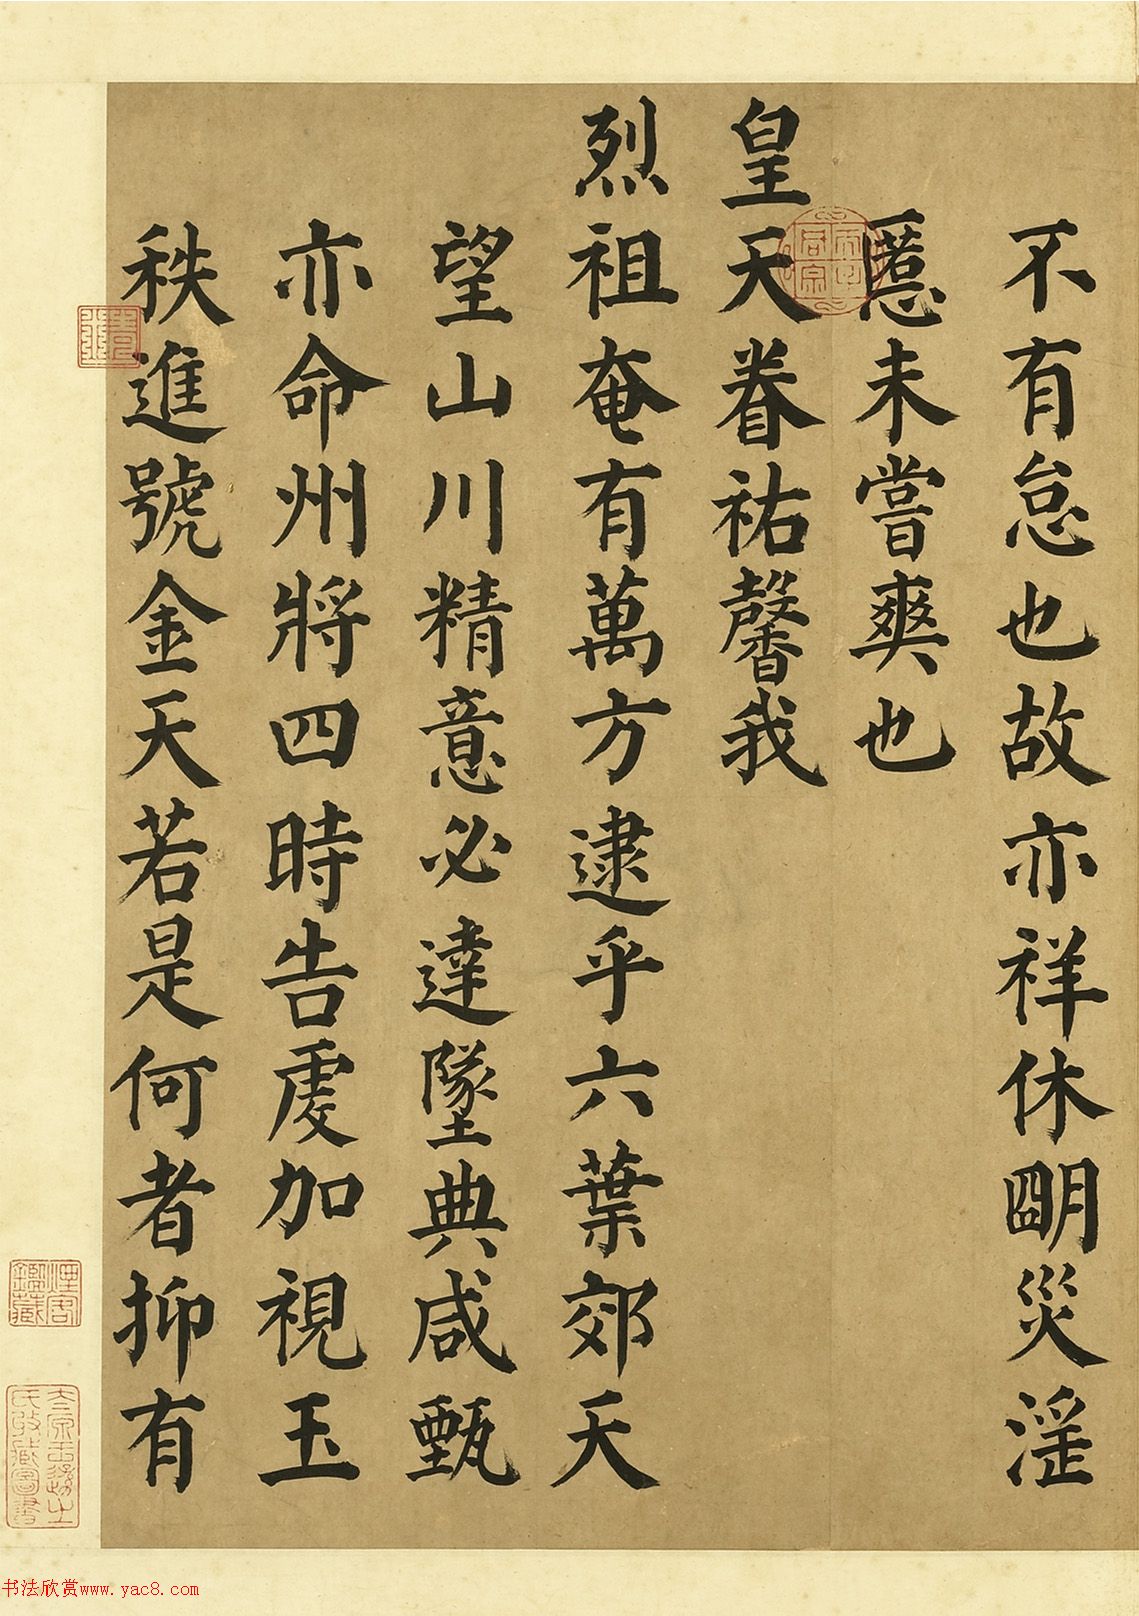 不有怠也故亦祥休朙災淫
慝未嘗爽也
皇天眷祐馨我
烈祖奄有萬方逮乎六葉郊天
望山川精意必達墜典咸甄
亦命州將四時告虔加視王
秩進號金天若是何者抑有
书法欣赏www.yac8.com